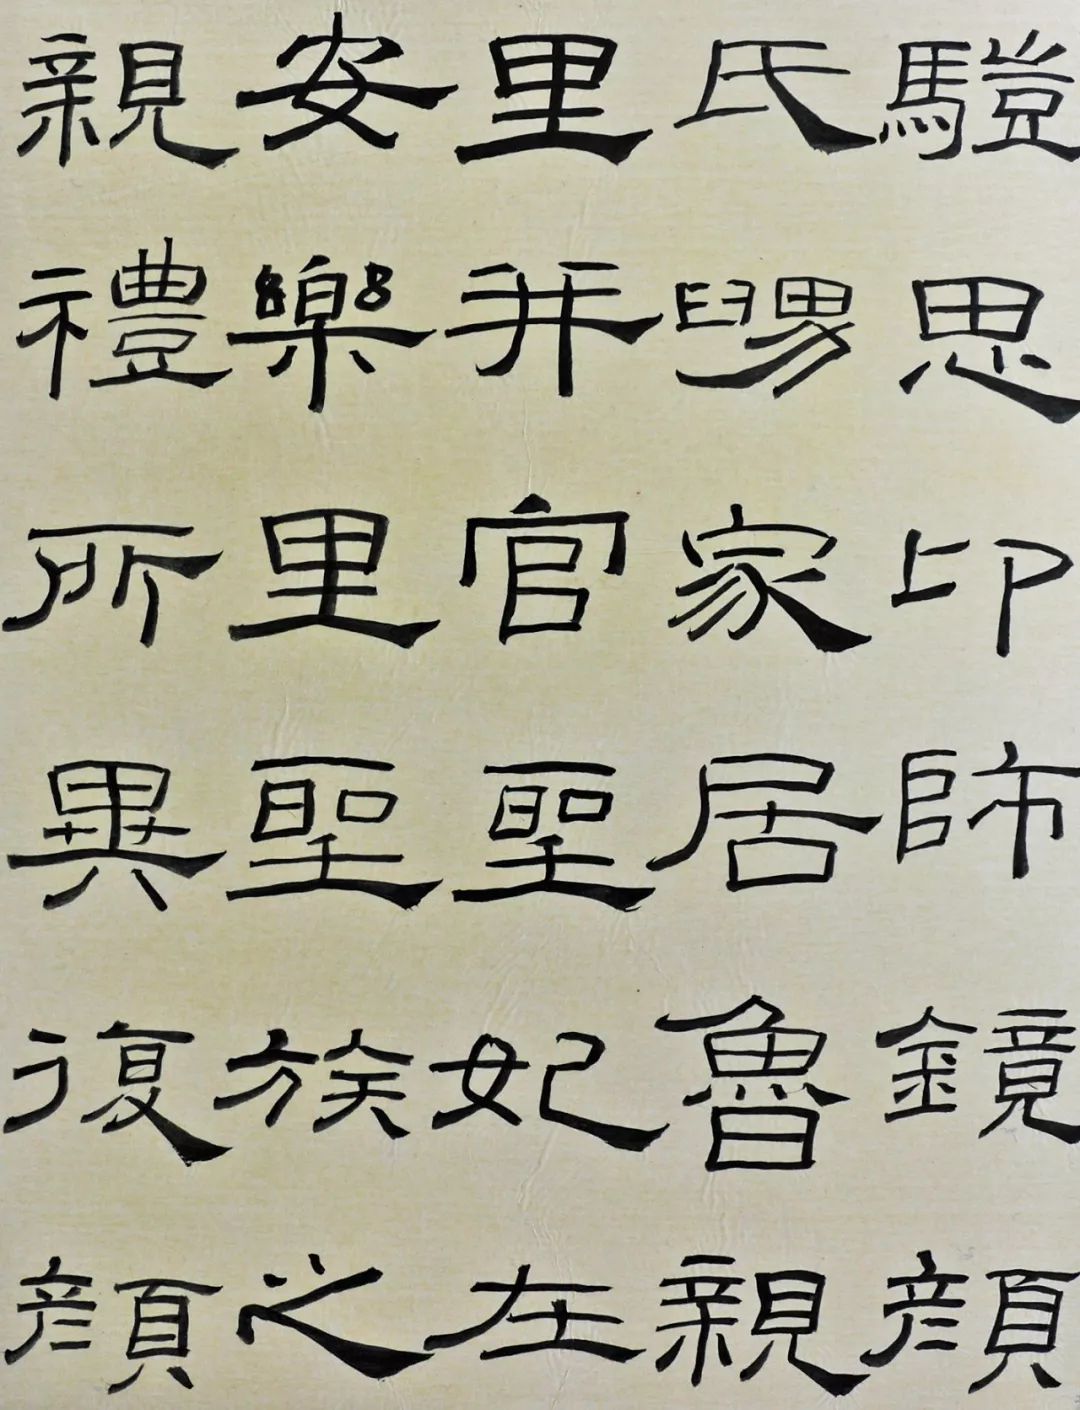 𩥉思卬師鏡顏
氏舅家居魯親
里并官聖妃在
安樂里聖族之
親禮所異復顏